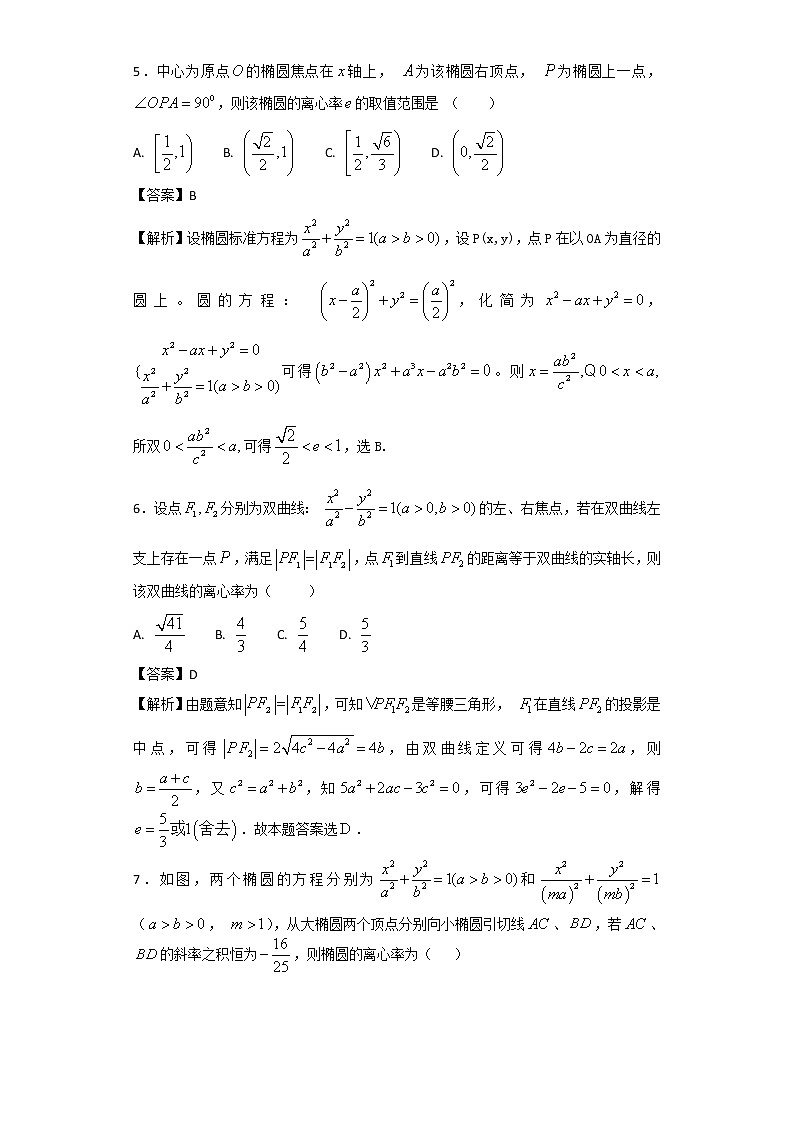 5．中心为原点O的椭圆焦点在x轴上， A为该椭圆右顶点， P为椭圆上一点，
∠OPA=90⁰,则该椭圆的离心率e的取值范围是 （ ）
A. [1/2,1) B. (√2/2,1) C. [1/2,√6/3) D. (0,√2/2)
【答案】B
【解析】设椭圆标准方程为x²/a²+y²/b²=1(a>b>0),设P(x,y),点P在以OA为直径的
圆上。圆的方程： (x−a/2)²+y²=(a/2)²,化简为x²−ax+y²=0,
{x²−ax+y²=0 x²/a²+y²/b²=1(a>b>0)可得(b²−a²)x²+a³x−a²b²=0。则x=ab²/c²,Q0<x<a,
所双0<ab²/c²<a,可得√2/2<e<1,选B.
6.设点F₁,F₂分别为双曲线: x²/a²−y²/b²=1(a>0,b>0)的左、右焦点,若在双曲线左
支上存在一点P,满足|PF₁|=|F₁F₂|,点F₁到直线PF₂的距离等于双曲线的实轴长,则
该双曲线的离心率为( )
A. √41/4 B. 4/3 C. 5/4 D. 5/3
【答案】D
【解析】由题意知|PF₂|=|F₁F₂|,可知∨PF₁F₂是等腰三角形， F₁在直线PF₂的投影是
中点,可得|PF₂|=2√4c²−4a²=4b,由双曲线定义可得4b−2c=2a,则
b=a+c/2,又c²=a²+b²,知5a²+2ac−3c²=0,可得3e²−2e−5=0,解得
e=5/3或1(舍去).故本题答案选D.
7.如图,两个椭圆的方程分别为x²/a²+y²/b²=1(a>b>0)和x²/(ma)²+y²/(mb)²=1
(a>b>0, m>1),从大椭圆两个顶点分别向小椭圆引切线AC、BD,若AC、
BD的斜率之积恒为−16/25,则椭圆的离心率为( )